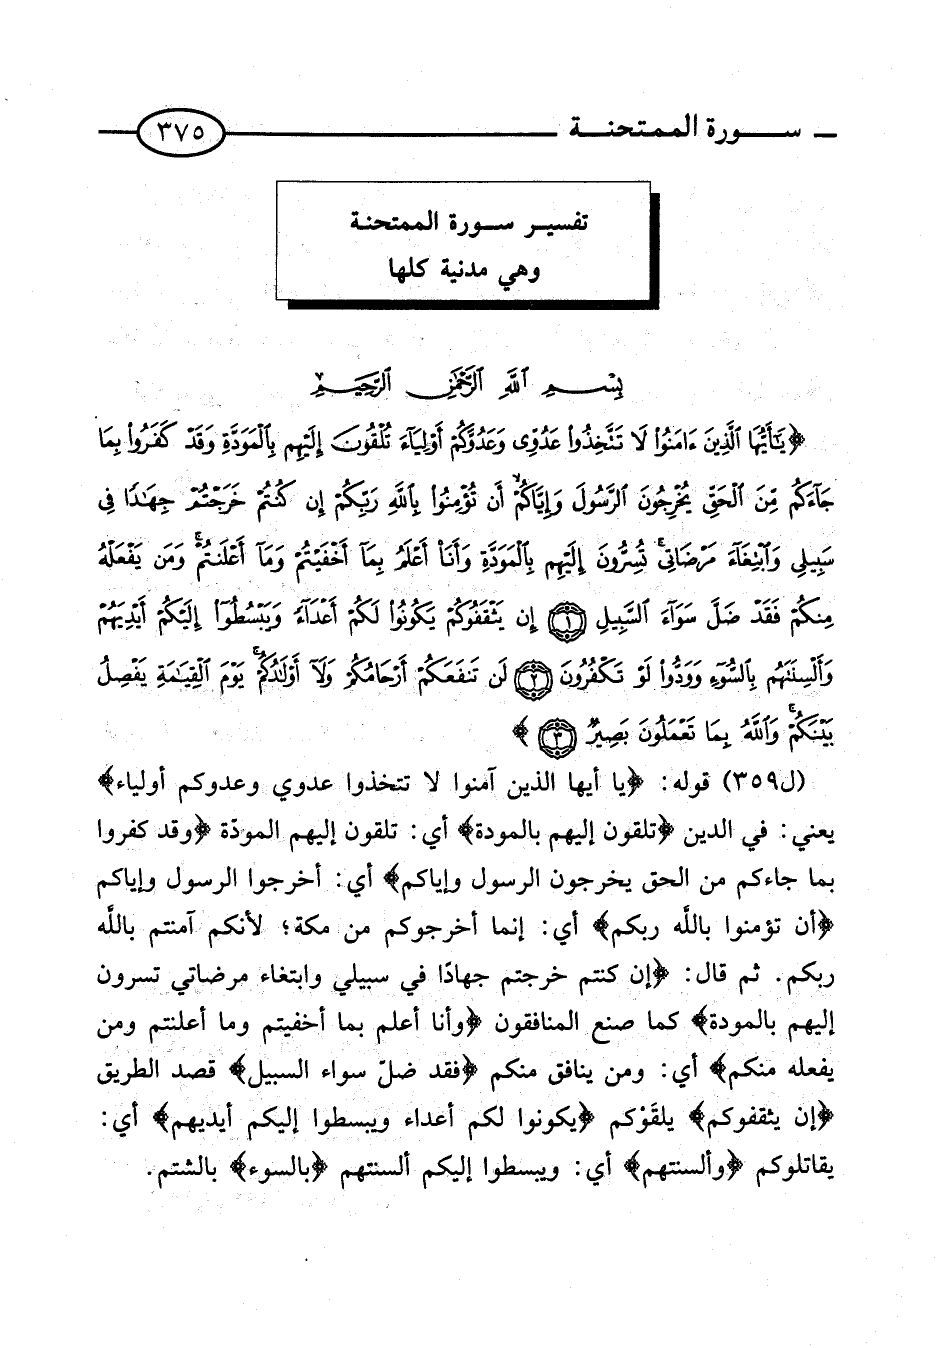 سـورة الممتحنـة
٣٧٥
تفسيـر سـورة الممتحنة
وهي مدنية كلها
بِسْمِ ٱللَّهِ ٱلرَّحْمَٰنِ ٱلرَّحِيمِ
﴿يَٰٓأَيُّهَا ٱلَّذِينَ ءَامَنُوا۟ لَا تَتَّخِذُوا۟ عَدُوِّى وَعَدُوَّكُمْ أَوْلِيَآءَ تُلْقُونَ إِلَيْهِم بِٱلْمَوَدَّةِ وَقَدْ كَفَرُوا۟ بِمَا
جَآءَكُم مِّنَ ٱلْحَقِّ يُخْرِجُونَ ٱلرَّسُولَ وَإِيَّاكُمْ ۙ أَن تُؤْمِنُوا۟ بِٱللَّهِ رَبِّكُمْ إِن كُنتُمْ خَرَجْتُمْ جِهَٰدًا فِى
سَبِيلِى وَٱبْتِغَآءَ مَرْضَاتِى ۚ تُسِرُّونَ إِلَيْهِم بِٱلْمَوَدَّةِ وَأَنَا۠ أَعْلَمُ بِمَآ أَخْفَيْتُمْ وَمَآ أَعْلَنتُمْ ۚ وَمَن يَفْعَلْهُ
مِنكُمْ فَقَدْ ضَلَّ سَوَآءَ ٱلسَّبِيلِ ١ إِن يَثْقَفُوكُمْ يَكُونُوا۟ لَكُمْ أَعْدَآءً وَيَبْسُطُوٓا۟ إِلَيْكُمْ أَيْدِيَهُمْ
وَأَلْسِنَتَهُم بِٱلسُّوٓءِ وَوَدُّوا۟ لَوْ تَكْفُرُونَ ٢ لَن تَنفَعَكُمْ أَرْحَامُكُمْ وَلَآ أَوْلَٰدُكُمْ ۚ يَوْمَ ٱلْقِيَٰمَةِ يَفْصِلُ
بَيْنَكُمْ ۚ وَٱللَّهُ بِمَا تَعْمَلُونَ بَصِيرٌ ٣﴾
(ل٣٥٩) قوله: ﴿يا أيها الذين آمنوا لا تتخذوا عدوي وعدوكم أولياء﴾
يعني: في الدين ﴿تلقون إليهم بالمودة﴾ أي: تلقون إليهم المودّة ﴿وقد كفروا
بما جاءكم من الحق يخرجون الرسول وإياكم﴾ أي: أخرجوا الرسول وإياكم
﴿أن تؤمنوا باللَّه ربكم﴾ أي: إنما أخرجوكم من مكة؛ لأنكم آمنتم باللَّه
ربكم. ثم قال: ﴿إن كنتم خرجتم جهادًا في سبيلي وابتغاء مرضاتي تسرون
إليهم بالمودة﴾ كما صنع المنافقون ﴿وأنا أعلم بما أخفيتم وما أعلنتم ومن
يفعله منكم﴾ أي: ومن ينافق منكم ﴿فقد ضلّ سواء السبيل﴾ قصد الطريق
﴿إن يثقفوكم﴾ يلقَوْكم ﴿يكونوا لكم أعداء ويبسطوا إليكم أيديهم﴾ أي:
يقاتلوكم ﴿وألسنتهم﴾ أي: ويبسطوا إليكم ألسنتهم ﴿بالسوء﴾ بالشتم.